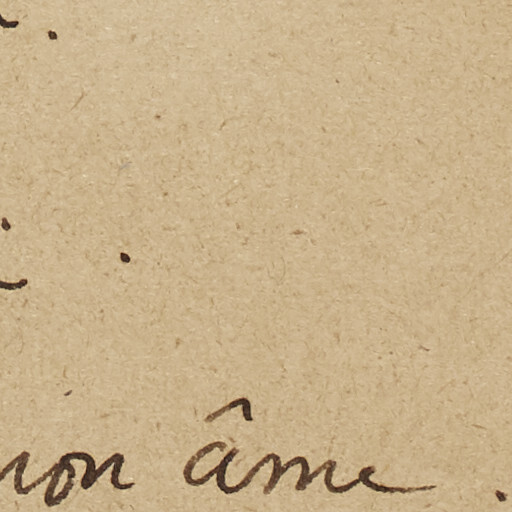 mon âme.